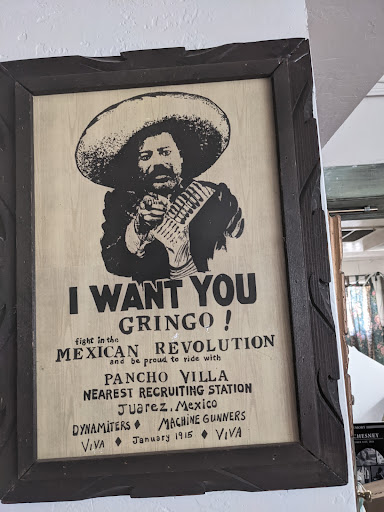 I WANT YOU
GRINGO!
fight in the
MEXICAN REVOLUTION
and be proud to ride with
PANCHO VILLA
NEAREST RECRUITING STATION
Juarez, Mexico
DYNAMITERS ♦ MACHINE GUNNERS
VIVA ♦ January 1915 ♦ VIVA
CHESNEY